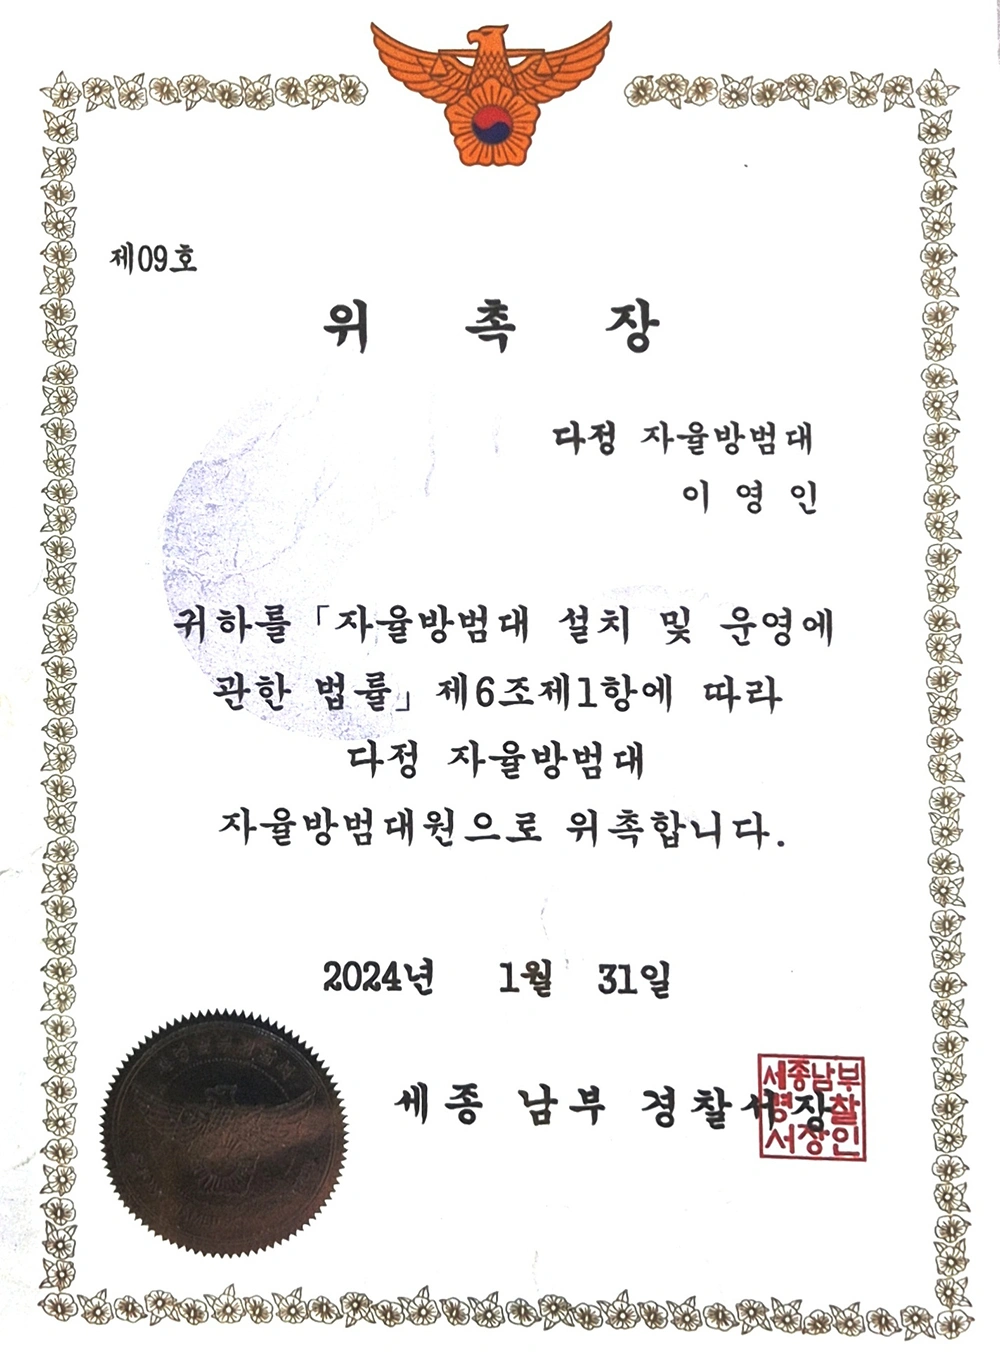 제09호
위 촉 장
다정 자율방범대
이 영 인
귀하를 「자율방범대 설치 및 운영에
관한 법률」 제6조제1항에 따라
다정 자율방범대
자율방범대원으로 위촉합니다.
2024년 1월 31일
세종 남부 경찰서장
세종남부
경찰
서장인